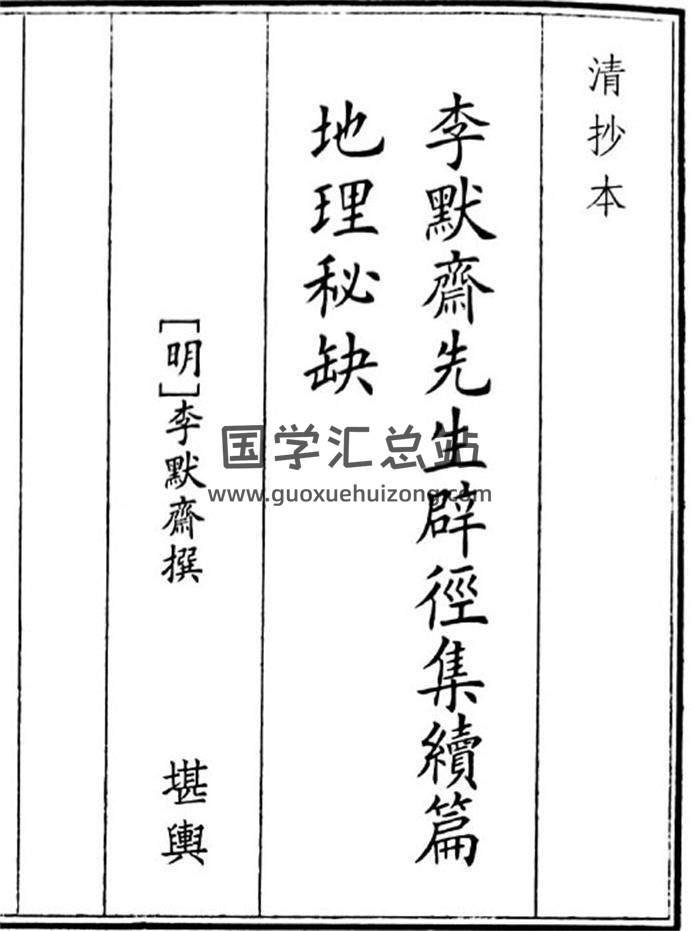 清抄本
李默齋先生辟徑集續篇
地理秘缺
[明]李默齋撰
堪輿
国学汇总站
www.guoxuehuizong.com